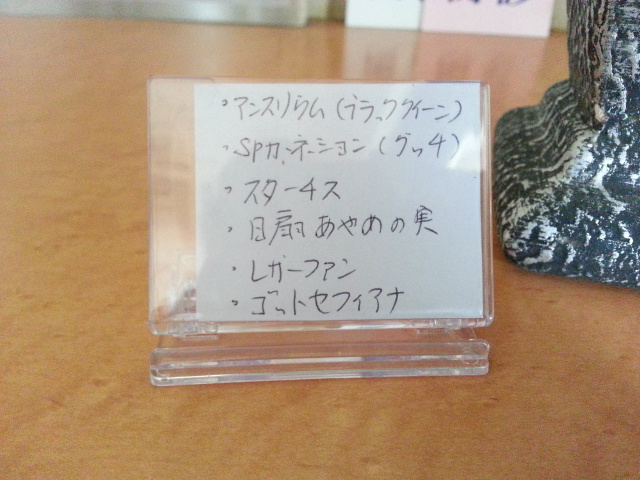 ・アンスリウム(ブラッククイーン)
・SPカーネーション(グッチ)
・スターチス
・日扇あやめの実
・レザーファン
・ゴットセフィアナ